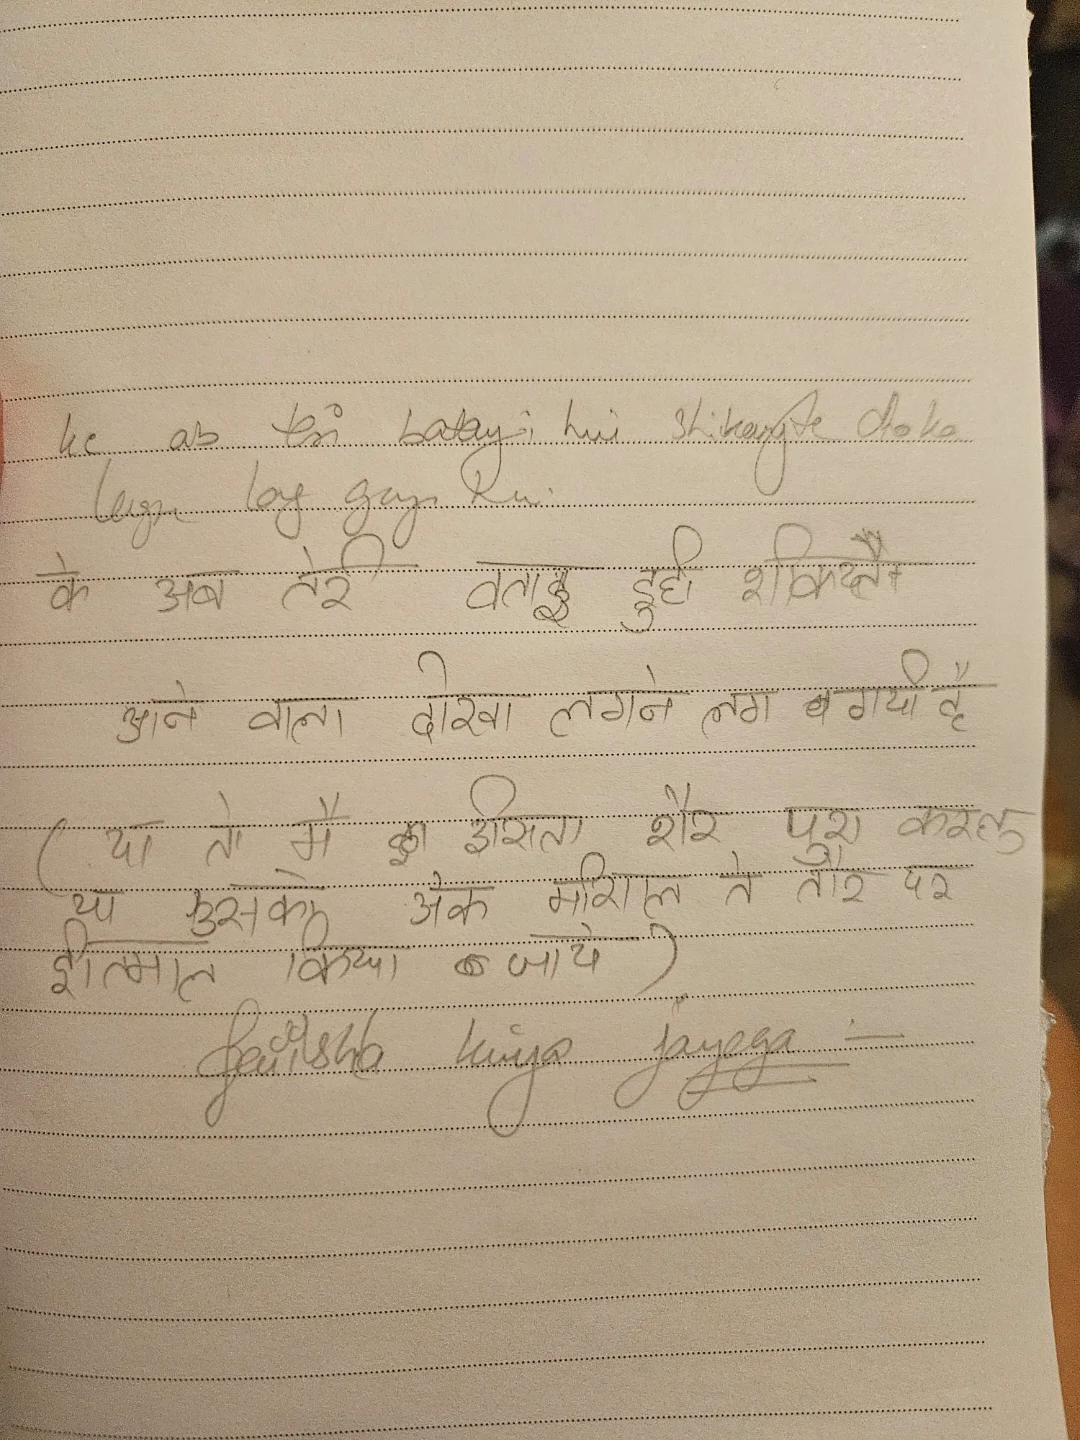 ke ab teri batayi hui shikayte dhoka
lagne lag gayi hai.
के अब तेरी बताई हुई शिकायतें
आने वाला दोखा लगने लग गयी है
( या तो मैं इसका शेर पुरा करलु
या उसको अेक मीशाल ते तौर पर
ईस्तमाल किया जाये )
kiya jayega :—